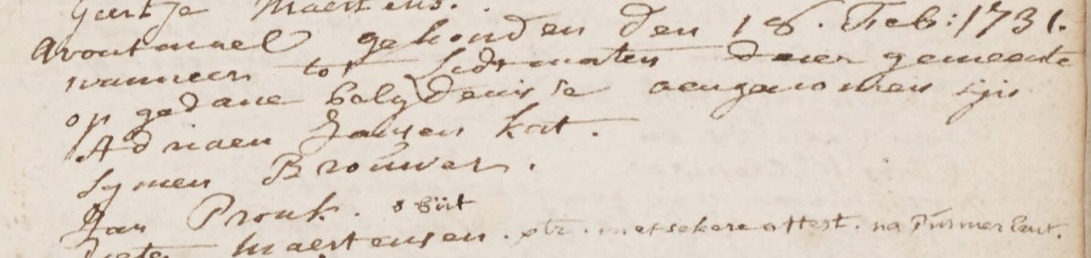 Geertje Maertens.
Avontmael gehouden den 18. Feb: 1731.
wanneer tot Ledematen deser gemeente
op gedane belydenisse aengenomen sijn
Adriaen Jansen kat.
Symen Brouwer.
Jan Pronk. obiit
Pieter Maertensen. met sekere attest. na Purmerlant.